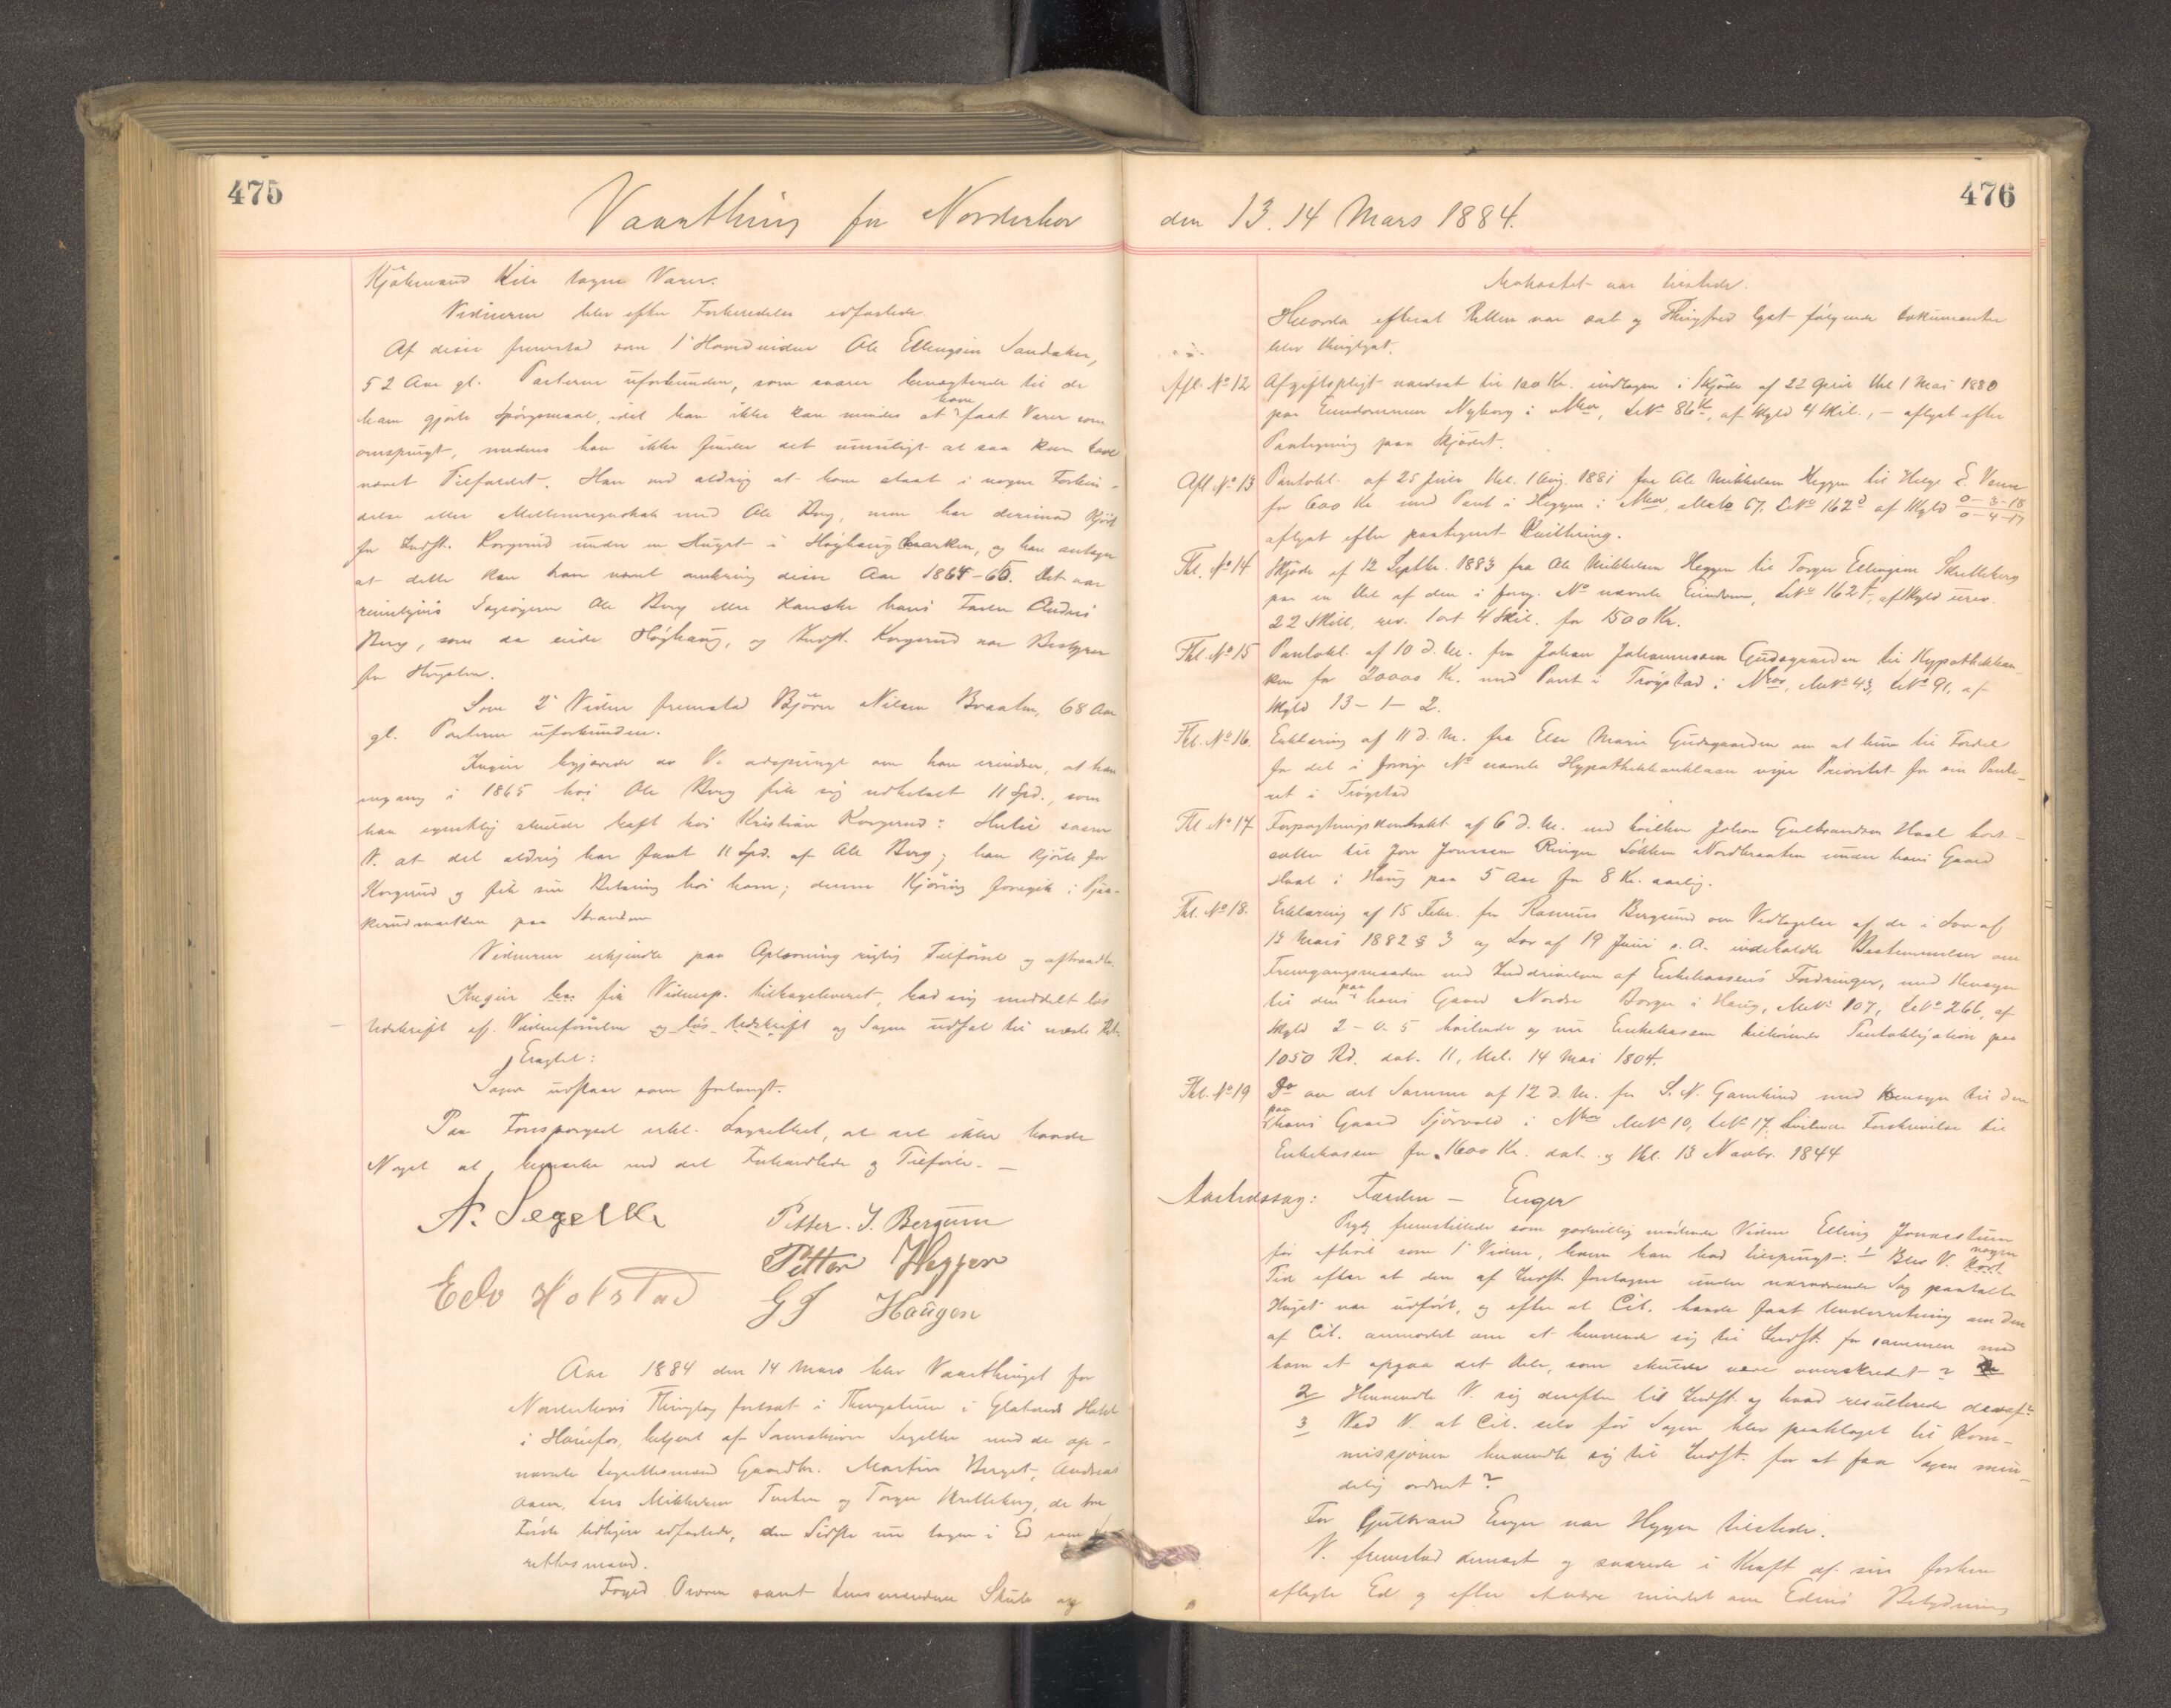 475
Vaarthing for Norderhov
Kjöbmand Kiil tagne Varer.
Vidnerne blev efter Forberedelse edfæstede.
Af disse fremstod som 1' Hovedvidne Ole Ellingsen Sandaker,
52 Aar gl. Parterne uforbunden, som svarer benægtende til de
ham gjorte Spörgsmaal, idet han ikke kan mindes at have faaet Varer som
omspurgt, medens han ikke finder det umuligt at saa kan have
været Tilfældet. Han ved aldrig at have staaet i nogen Forbin-
delse eller Mellemregnskab med Ole Berg, men har derimod kjört
for Indst. Korgerud under en Hugst i Höghaug marken, og han antager
at dette kan have været omkring disse Aar 1864-65. Det var
rimeligvis Sagsögeren Ole Berg eller kanske hans Fader Anders
Berg, som da eiede Höghaug, og Indst. Korgerud var Bestyrer
for Hugsten.
Som 2' Vidne fremstod Björn Nilsen Braaten, 68 Aar
gl. Parterne uforbunden.
begjærede av V. adspurgt om han erindrer, at han
engang i 1865 hos Ole Berg fik sig udbetalt 11 Spd., som
han egentlig skulde havt hos Kristian Korgerud? Hertil svarer
V. at det aldrig har faaet 11 Spd. af Ole Berg; han kjörte for
Korgerud og fik sin Betaling hos ham; denne Kjöring foregik i
marken paa Stranden
Vidnerne erkjendte paa Oplæsning rigtig Tilförsel og aftraadte.
for Vidnesp. tilbageleveret, bad sig meddelt løs
Udskrift af Vidneförselen og løs Udskrift og Sagen udsat til næste Ret.
Eragtet:
Sagen udstaar som forlangt.
Paa Forespørgsel erkl. Lagrettet, at det ikke havde
Noget at bemærke ved det Forhandlede og Tilförte. —
A. Segelcke
Petter. J. Bergum
Petter Heggen
Edv Holstad
G J Haugen
Aar 1884 den 14 Mars blev Vaarthinget for
Norderhovs Thinglag fortsat i Thingstuen i Glatveds Hotel
i Hönefos, betjent af Sorenskriver Segelcke med de op-
nævnte Lagrettesmænd Gaardbr. Martin Berget, Andreas
Aasen, Lars Mikkelsen Tveten og Torger Skrelleberg, de tre
Förste tidligere edfæstede, den Sidste nu tagen i Ed som
rettesmand.
Foged Owren samt Lensmændene Skule og
476
den 13. 14 Mars 1884.
Mohastet var tilstede.
Hvorda efterat Retten var sat og Thingfred lyst fölgende Dokumenter
blev thinglyst.
Afl. No 12 Afgiftspligt værdsat til 100 Kr. indtagen i Skjöde af 22 April thl. 1 Mai 1880
paa Eiendommen Nyborg i Nhov, LNo 86k, af Skyld 4 Skil., — aflyst efter
Paategning paa Skjödet.
Afl. No 13 Pantobl. af 25 Juli thl. 1 Aug. 1881 fra Ole Mikkelsen Heggen til Helge E. Vena
for 600 Kr. med Pant i Heggen i Nhov, MNo 67, LNo 162d af Skyld 0-3-18 0-4-17
aflyst efter paategnet Kvittering.
Thl. No 14 Skjöde af 12 Septbr. 1883 fra Ole Mikkelsen Heggen til Torger Ellingsen Skrelleberg
paa en Del af den i forrg. No nævnte Eiendom, LNo 162f, af Skyld urev.
22 Skill, rev. 1 ort 4 Skil. for 1500 Kr.
Thl. No 15 Pantobl. af 10 d. M. fra Johan Johannessen Gudsgaarden til Hypothekban-
ken for 20000 Kr. med Pant i Trögstad i Nhov, MNo 43, LNo 91, af
Skyld 13 - 1 - 2.
Thl. No 16. Erklæring af 11 d. M. fra Else Marie Gudsgaarden om at hun til Fordel
for det i forrige No nævnte Hypothekbanklaan viger Prioritet for sin Pante-
ret i Trögstad
Thl No 17 Forpagtningskontrakt af 6 d. M. ved hvilken Johan Gulbrandsen Hval bort-
sætter til Jon Jonssen Ringen Lökken Nordbraaten under hans Gaard
Hval i Haug paa 5 Aar for 8 Kr. aarlig.
Thl. No 18. Erklæring af 15 Febr. fra Rasmus Bergsund om Vedtagelse af de i Lov af
13 Mars 1882 § 3 og Lov af 19 Juni s. A. indeholdte Bestemmelser om
Fremgangsmaaden ved Inddrivelsen af Enkekassens Fordringer, med Hensyn
til den paa hans Gaard Nordre Borger i Haug, MNo 107, LNo 266, af
Skyld 2 - 0 - 5 hvilende og nu Enkekassen tilhörende Pantobligation paa
1050 Rd. dat. 11, thl. 14 Mai 1804.
Thl. No 19 Do om det Samme af 12 d. M. fra S. N. Gamkind med Hensyn til den
paa hans Gaard Sjörvold i Nhov MNo 10, LNo 17 hvilende Forskrivelse til
Enkekassen for 1600 Kr. dat. og thl. 13 Novbr. 1844
Aastedssag: Færden — Enger
fremstillede som godvillig mödende Vidne Elling Jonsestuen
for afhört som 1' Vidne, hvem han bad tilspurgt: 1 Blev V. nogen
Tid efter at den af Indst. foretagne under nærværende Sag paatalte
Hugst var udfört, og efter at Cit. havde faaet Underretning om den
af Cit. anmodet om at henvende sig til Indst. for sammen med
ham at opgaa det Dele, som skulde være overskredet?
2 Henvendte V. sig derefter til Indst. og hvad resulterede deraf?
3 Ved V. at Cit. selv för Sagen blev paaklaget til Kom-
missjonen henvendte sig til Indst. for at faa Sagen min-
delig ordnet?
For Gulbrand Enger var Hyggen tilstede.
V. fremstod dernæst og svarede i Kraft af sin forhen
aflagte Ed og efter at være mindet om Edens Betydning